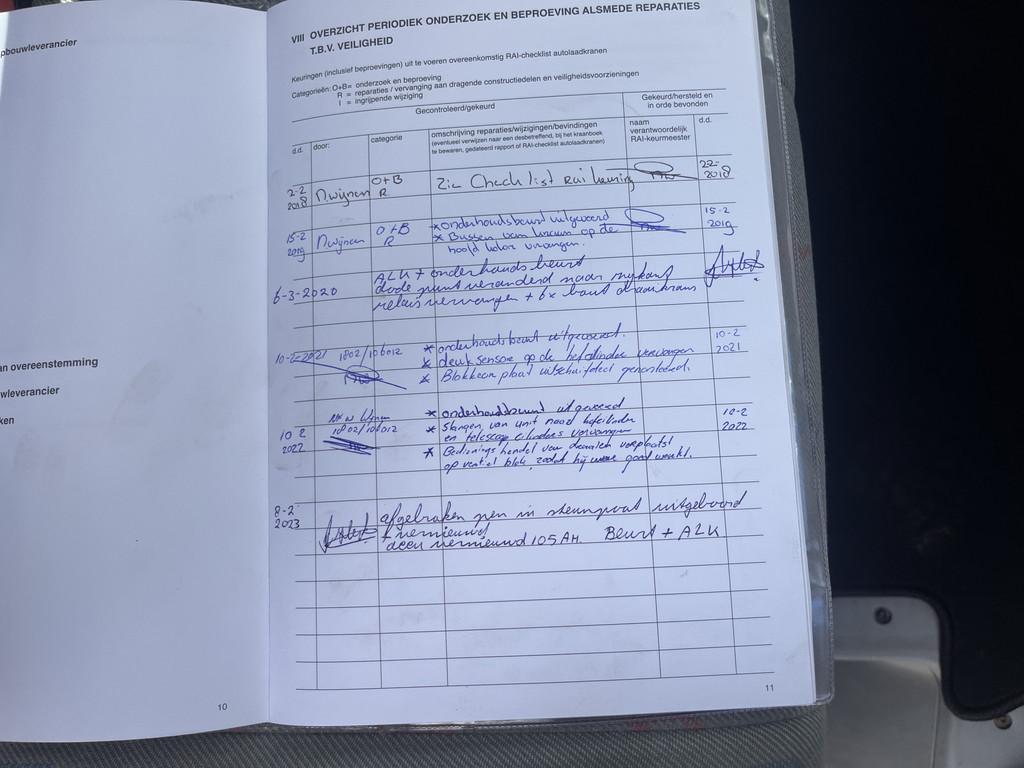 pbouwleverancier
an overeenstemming
wleverancier
ken
10
VIII OVERZICHT PERIODIEK ONDERZOEK EN BEPROEVING ALSMEDE REPARATIES
T.B.V. VEILIGHEID
Keuringen (inclusief beproevingen) uit te voeren overeenkomstig RAI-checklist autolaadkranen
Categorieën: O+B= onderzoek en beproeving
R = reparaties / vervanging aan dragende constructiedelen en veiligheidsvoorzieningen
I = ingrijpende wijziging
Gecontroleerd/gekeurd
Gekeurd/hersteld en
in orde bevonden
d.d.
door:
categorie
omschrijving reparaties/wijzigingen/bevindingen
(eventueel verwijzen naar een desbetreffend, bij het kraanboek
te bewaren, gedateerd rapport of RAI-checklist autolaadkranen)
naam
verantwoordelijk
RAI-keurmeester
d.d.
2-2
2018
Nwijnen
O+B
R
Zie Checklist Rai keuring
22-
2018
15-2
2019
Nwijnen
O+B
R
* onderhoudsbeurt uitgevoerd
* Bussen van kraan op de
hoofd vervangen.
15-2
2019
6-3-2020
ALK + onderhoudsbeurt
dode punt veranderd naar
relais vervangen + 6x bout
10-2-2021
1802/106012
* onderhoudsbeurt uitgevoerd.
* druk sensor op de hefcilinder vervangen
* Blokkeer plaat uitschuifdeel
10-2
2021
10-2
2022
1802/106012
* onderhoudsbeurt uitgevoerd
* Slangen van unit naar hefcilinder
en telescoop cilinders vervangen
* Bedienings hendel van draaien verplaatst
op ventiel blok, zodat hij weer goed werkt.
10-2
2022
8-2
2023
afgebroken pen in steunpoot uitgeboord
+ vernieuwd
accu vernieuwd 105AH. Beurt + ALK
11